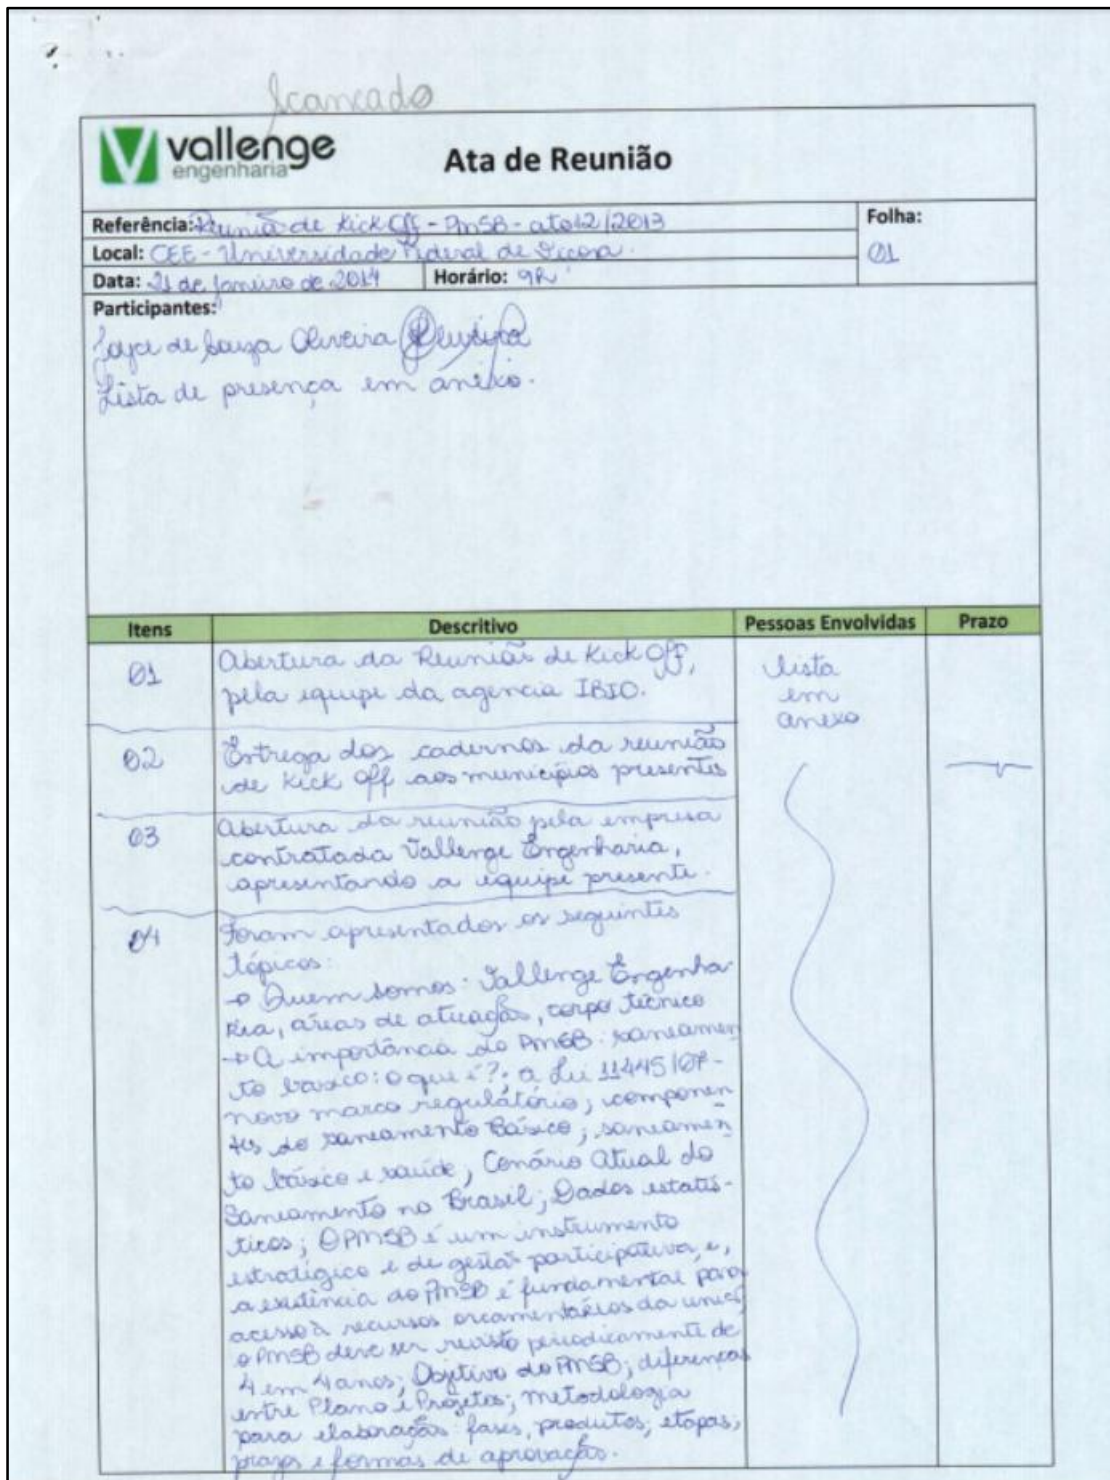 Scaneado
vallenge
engenharia
Ata de Reunião
Referência: Reunião de Kick Off - PMSB - ato 12/2013
Folha:
01
Local: CEE - Universidade Federal de Viçosa.
Data: 21 de janeiro de 2014 Horário: 9h
Participantes:
Joyce de Souza Oliveira
Lista de presença em anexo.
Itens Descritivo Pessoas Envolvidas Prazo
01 Abertura da Reunião de Kick Off,
pela equipe da agencia IBIO.
lista
em
anexo
02 Entrega dos cadernos da reunião
de Kick Off aos municípios presentes
03 Abertura da reunião pela empresa
contratada Vallenge Engenharia,
apresentando a equipe presente.
04 Foram apresentados os seguintes
tópicos:
→ Quem somos: Vallenge Engenha-
ria, áreas de atuação, corpo técnico
→ A importância do PMSB: saneamen
to básico: o que é?; a Lei 11445/07-
novo marco regulatório; componen
tes do saneamento Básico; saneamen
to básico e saúde; Cenário Atual do
Saneamento no Brasil; Dados estatís-
ticos; O PMSB é um instrumento
estratégico e de gestão participativa, e,
a existência do PMSB é fundamental para
acesso à recursos orcamentários da união;
o PMSB deve ser revisto periodicamente de
4 em 4 anos; Objetivo do PMSB; diferenças
entre Plano e Projetos; metodologia
para elaboração: fases, produtos, etapas,
prazos e formas de aprovação.